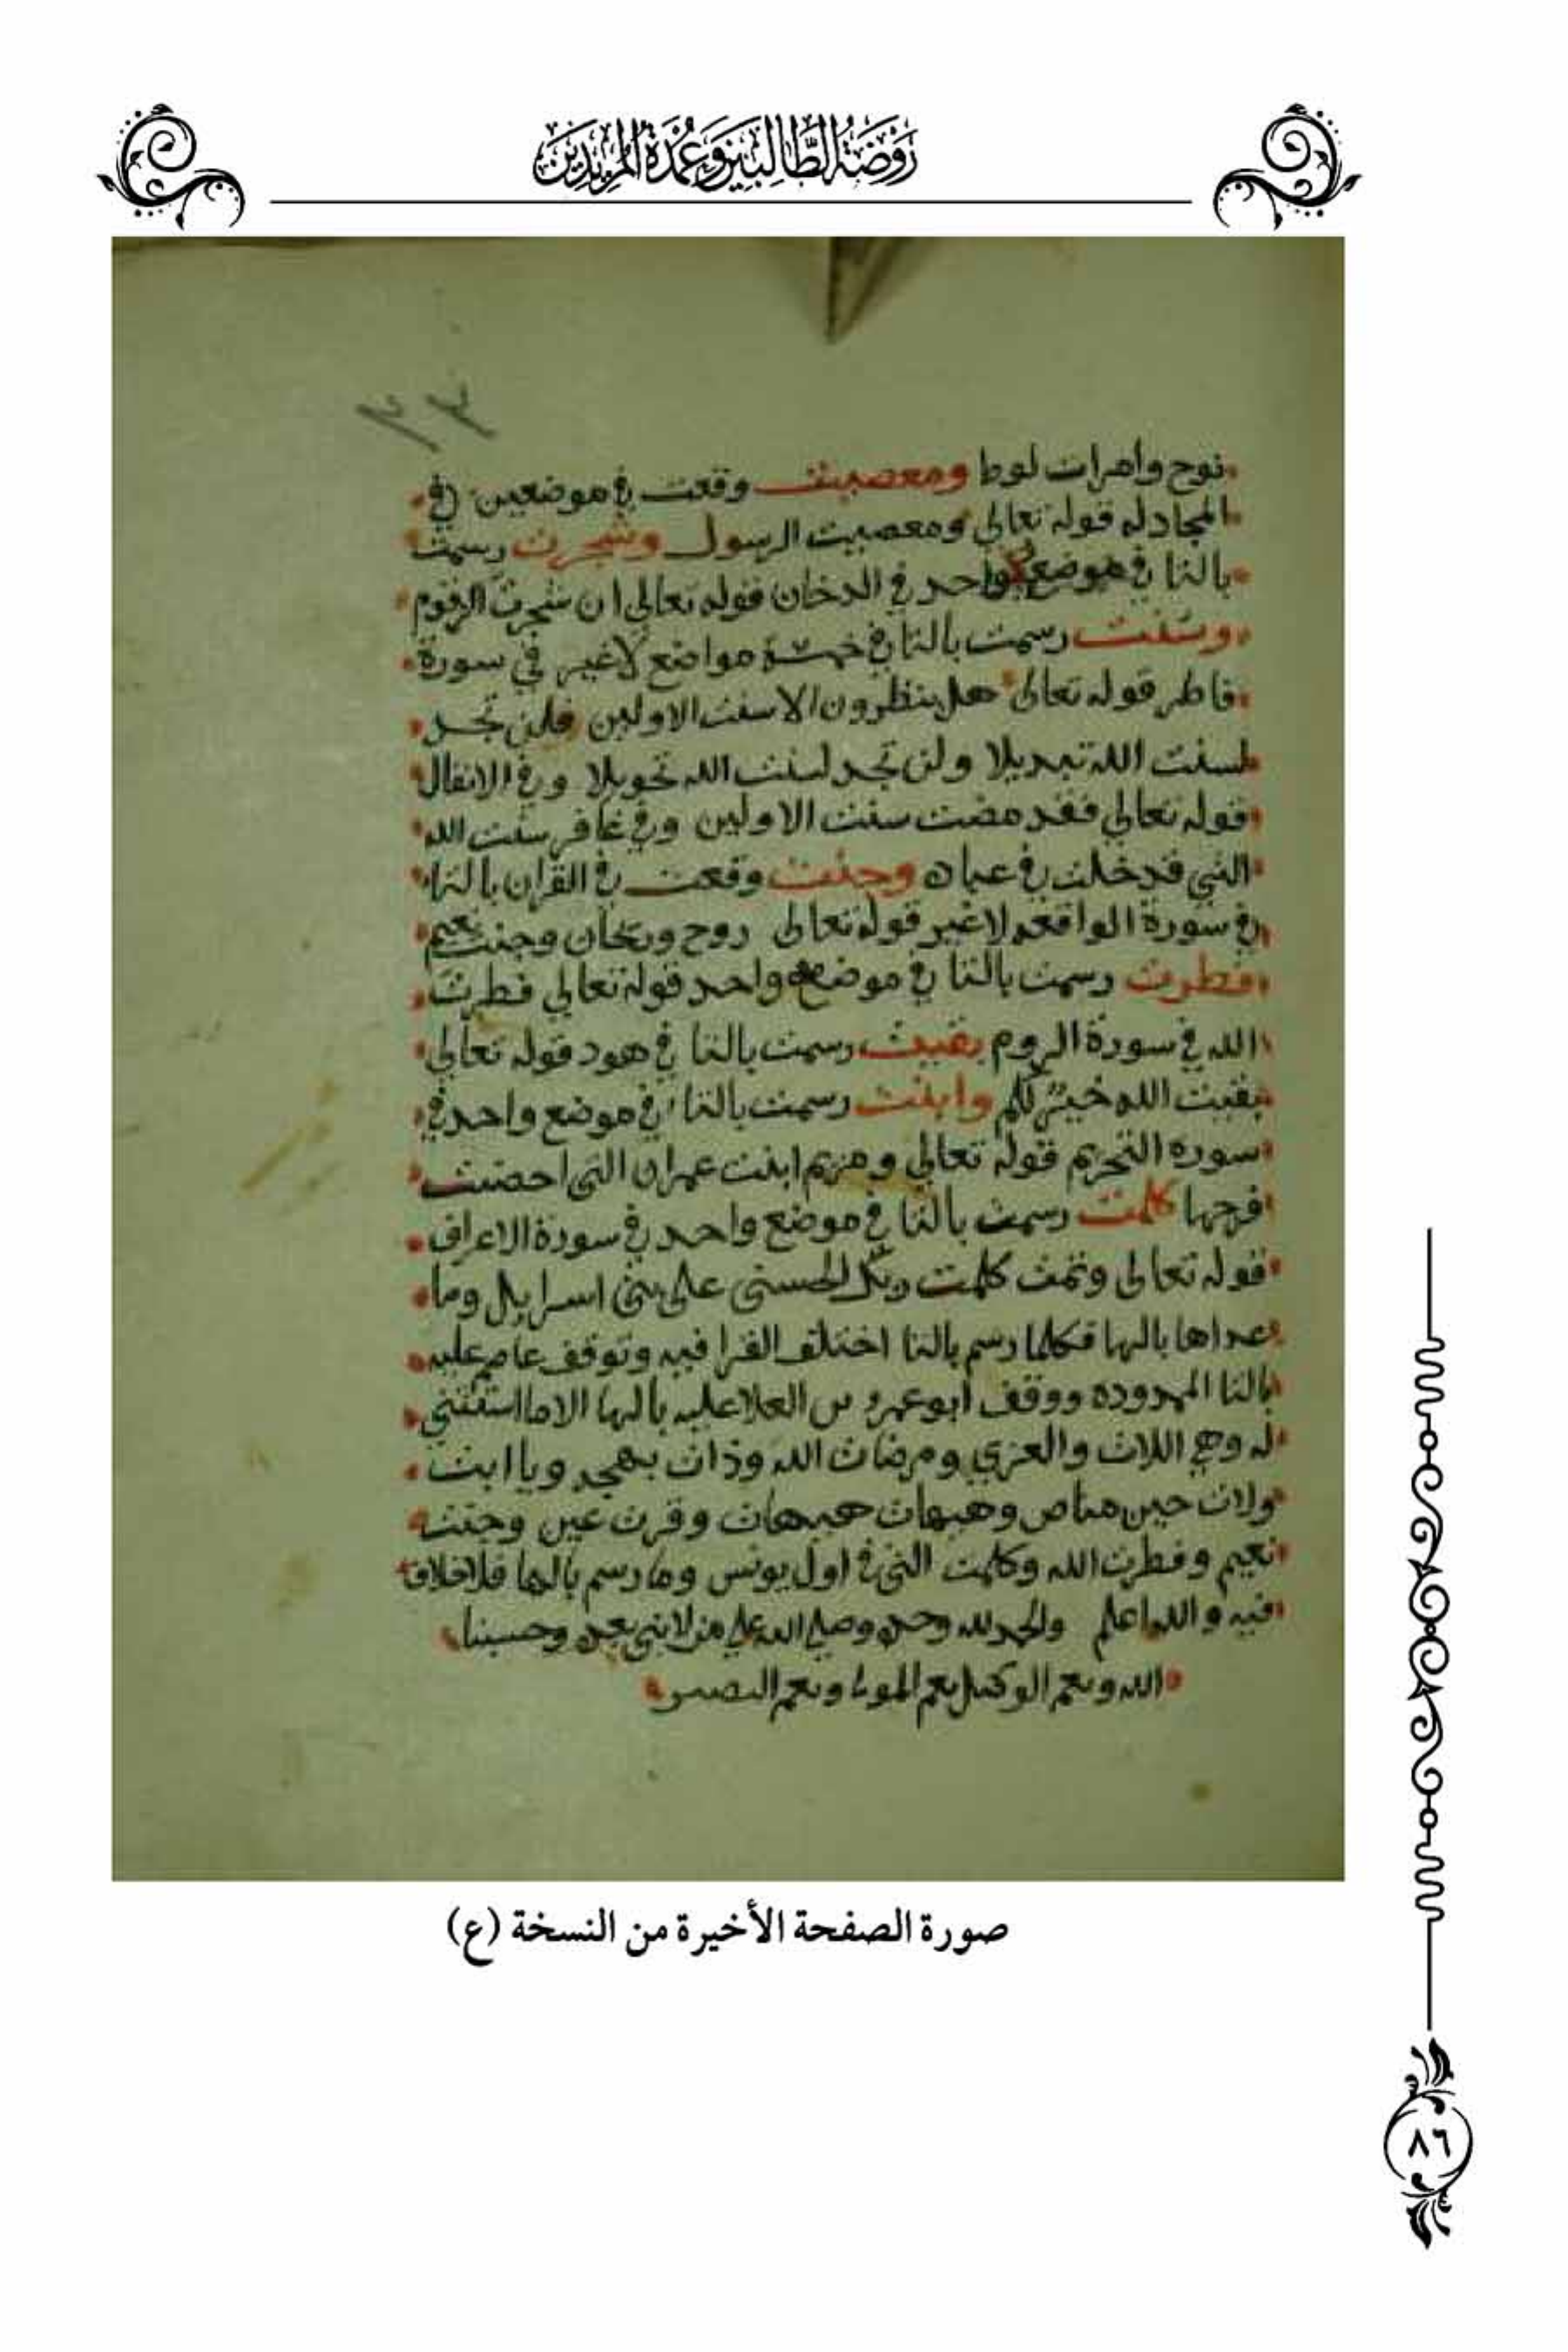 روضة الطالبين وعمدة المريدين
نوح وامرات لوط ومعصيت وقعت في موضعين في
المجادله قوله تعالى ومعصيت الرسول وشجرت رسمت
بالتا في موضع واحد في الدخان قوله تعالي ان شجرت الزقوم
وسنت رسمت بالتا في خمسة مواضع لاغير في سورة
فاطر قوله تعالى هل ينظرون الا سنت الاولين فلن تجد
لسنت الله تبديلا ولن تجد لسنت الله تحويلا وفي الانفال
قوله تعالي فقد مضت سنت الاولين وفي غافر سنت الله
التي قد خلت في عباده وجنت وقعت في القران بالتاء
في سورة الواقعه لاغير قوله تعالى روح وريحان وجنت نعيم
فطرت رسمت بالتا في موضع واحد قوله تعالي فطرت
الله في سورة الروم بقيت رسمت بالتا في هود قوله تعالي
بقيت الله خير لكم وابنت رسمت بالتا في موضع واحد في
سوره التحريم قوله تعالي ومريم ابنت عمران التي احصنت
فرجها كلمت رسمت بالتا في موضع واحد في سورة الاعراف
قوله تعالى وتمت كلمت ربك الحسنى على بني اسرايل وما
عداها بالها فكلما رسم بالتا اختلف القرا فيه وتوقف عاصم عليه
بالتا الممدوده ووقف ابو عمرو بن العلا عليه بالها الا ما استثني
له وهي اللات والعزي ومرضات الله وذات بهجه ويا ابت
ولات حين مناص وهيهات هيهات وقرت عين وجنت
نعيم وفطرت الله وكلمت التي في اول يونس وما رسم بالها فلا خلاف
فيه والله اعلم والحمد لله وحده وصلي الله علي من لا نبي بعده وحسبنا
الله ونعم الوكيل نعم المولى ونعم النصير
صورة الصفحة الأخيرة من النسخة (ع)
٨٦